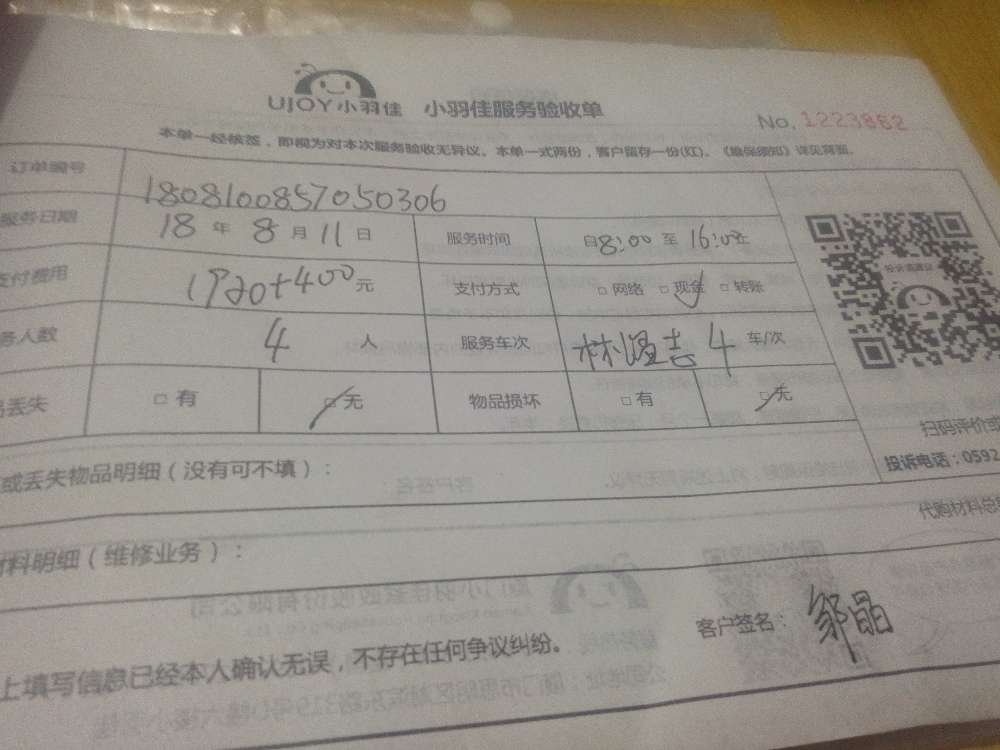 UJOY小羽佳 小羽佳服务验收单
No. 1223862
本单一经核签，即视为对本次服务验收无异议。本单一式两份，客户留存一份(红)。《维保须知》详见背面。
订单编号 1808100857050306
服务日期 18年8月11日 服务时间 自8:00至16:00止
支付费用 1920+400元 支付方式 □网络 □现金 □转账
务人数 4人 服务车次 4车/次
丢失 □有 □无 物品损坏 □有 □无
扫码评价或
投诉电话：0592
或丢失物品明细（没有可不填）：
代购材料总
材料明细（维修业务）：
客户签名：邹晶
上填写信息已经本人确认无误，不存在任何争议纠纷。